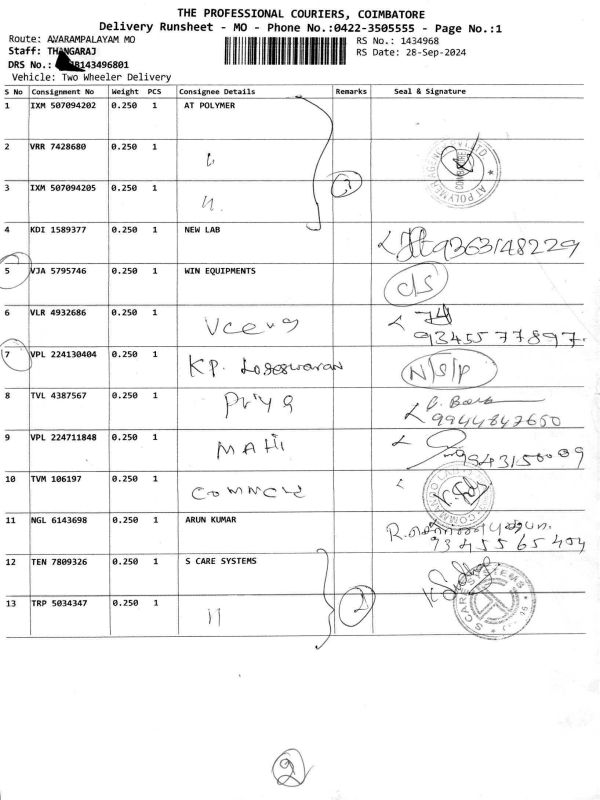 THE PROFESSIONAL COURIERS, COIMBATORE
Delivery Runsheet - MO - Phone No.:0422-3505555 - Page No.:1
Route: AVARAMPALAYAM MO
RS No.: 1434968
Staff: THANGARAJ
RS Date: 28-Sep-2024
DRS No.: 143496801
Vehicle: Two Wheeler Delivery
S No Consignment No Weight PCS Consignee Details Remarks Seal & Signature
1 IXM 507094202 0.250 1 AT POLYMER
2 VRR 7428680 0.250 1 "
AT POLYMER AGENC
COIMBATORE
3 IXM 507094205 0.250 1 " 3
4 KDI 1589377 0.250 1 NEW LAB 9363148229
5 VJA 5795746 0.250 1 WIN EQUIPMENTS C/S
6 VLR 4932686 0.250 1 9345577897.
7 VPL 224130404 0.250 1 KP. Logeswaran N/S/P
8 TVL 4387567 0.250 1 Priya 9944847650
9 VPL 224711848 0.250 1 MAHI 9943150009
10 TVM 106197 0.250 1
11 NGL 6143698 0.250 1 ARUN KUMAR 9345565404
12 TEN 7809326 0.250 1 S CARE SYSTEMS
13 TRP 5034347 0.250 1 " 2
S CARE SYSTEMS
2